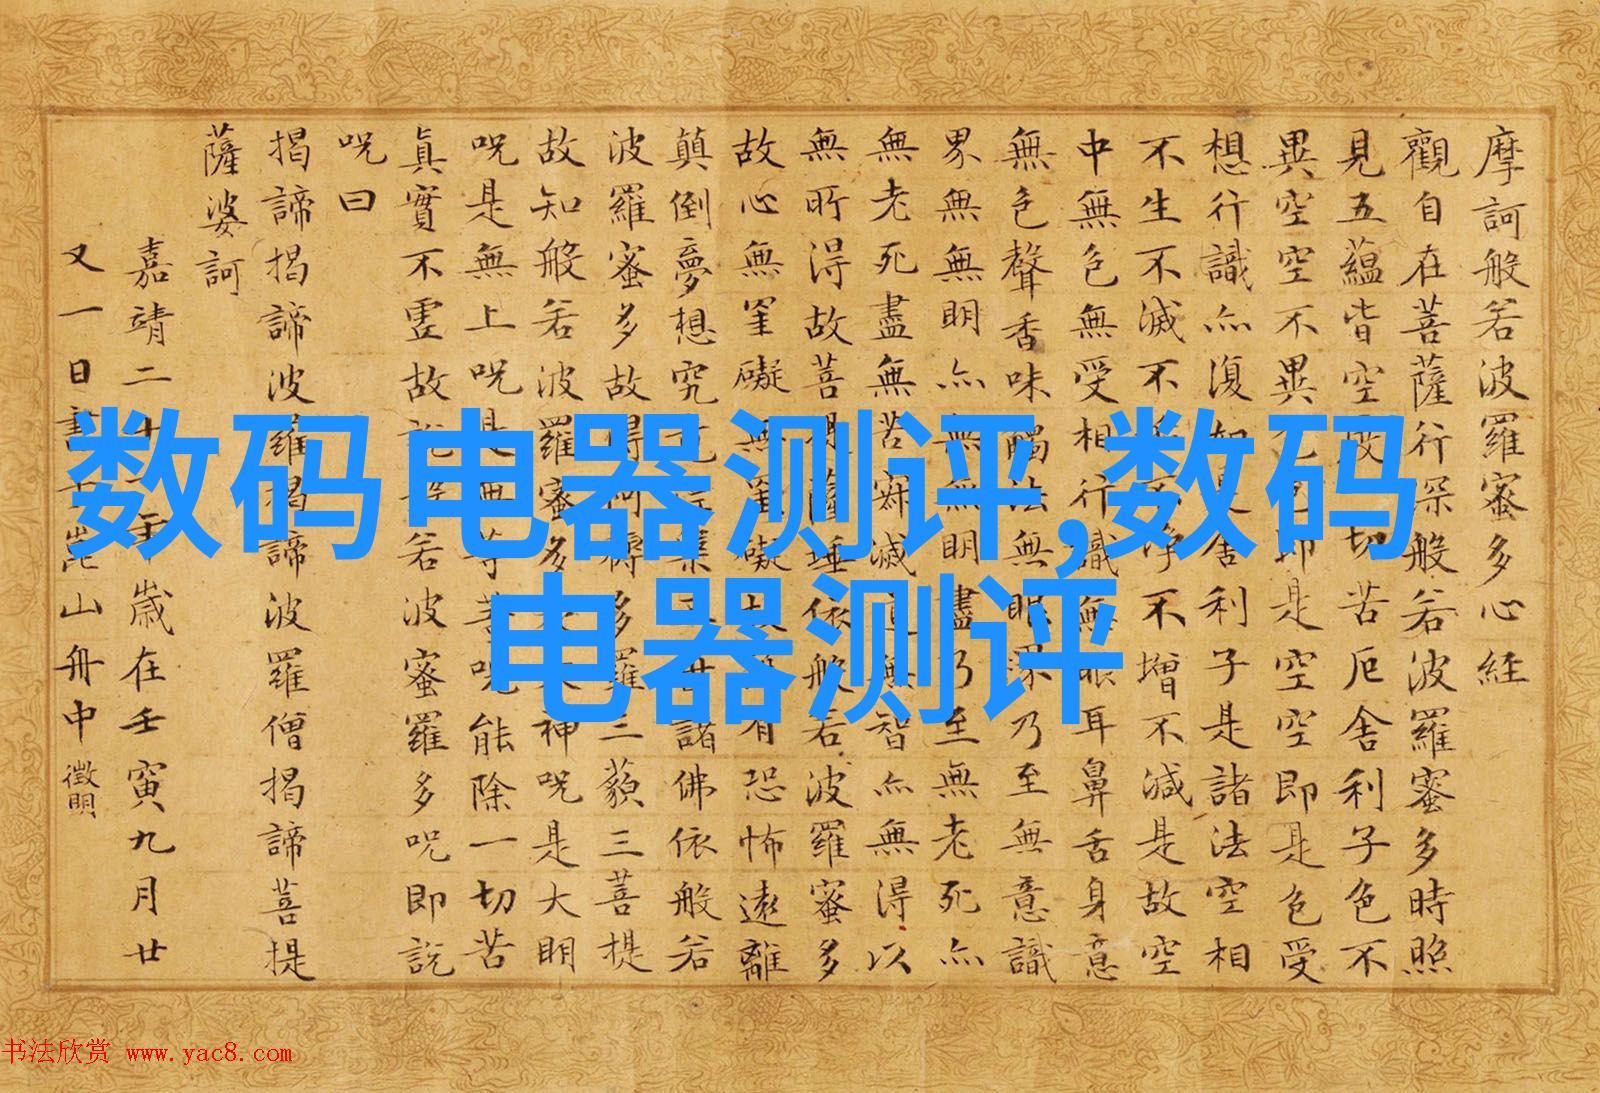 摩訶般若波羅蜜多心經
觀自在菩薩行深般若波羅蜜多時照
見五蘊皆空度切苦厄舍利子色不
異空空不異色即是空空即是色受
想行識亦復如是舍利子是諸法空相
不生不滅不不淨不增不減是故空
中無色無受相行識無眼耳鼻舌身意
無色聲香味觸法無眼深乃至無意識
界無無明亦無無明盡乃至無老死亦
無老死盡無苦寂滅道無智亦無得以
無所得故菩提薩埵依般若波羅蜜多
故心無罣礙無罣礙故有恐怖遠離
顛倒夢想究竟三世諸佛依般若
波羅蜜多故得阿耨多羅三藐三菩提
故知般若波羅蜜多是大神咒是大明
咒是無上咒是無等咒能除一切苦
真實不虛故說般若波羅蜜羅多咒即說
咒曰
揭諦揭諦波羅揭諦波羅僧揭諦菩提
薩婆訶
嘉靖二十一年歲在壬寅九月廿
又一日書于崑山舟中 徵明
数码电器测评,数码
电器测评
书法欣赏 www.yac8.com